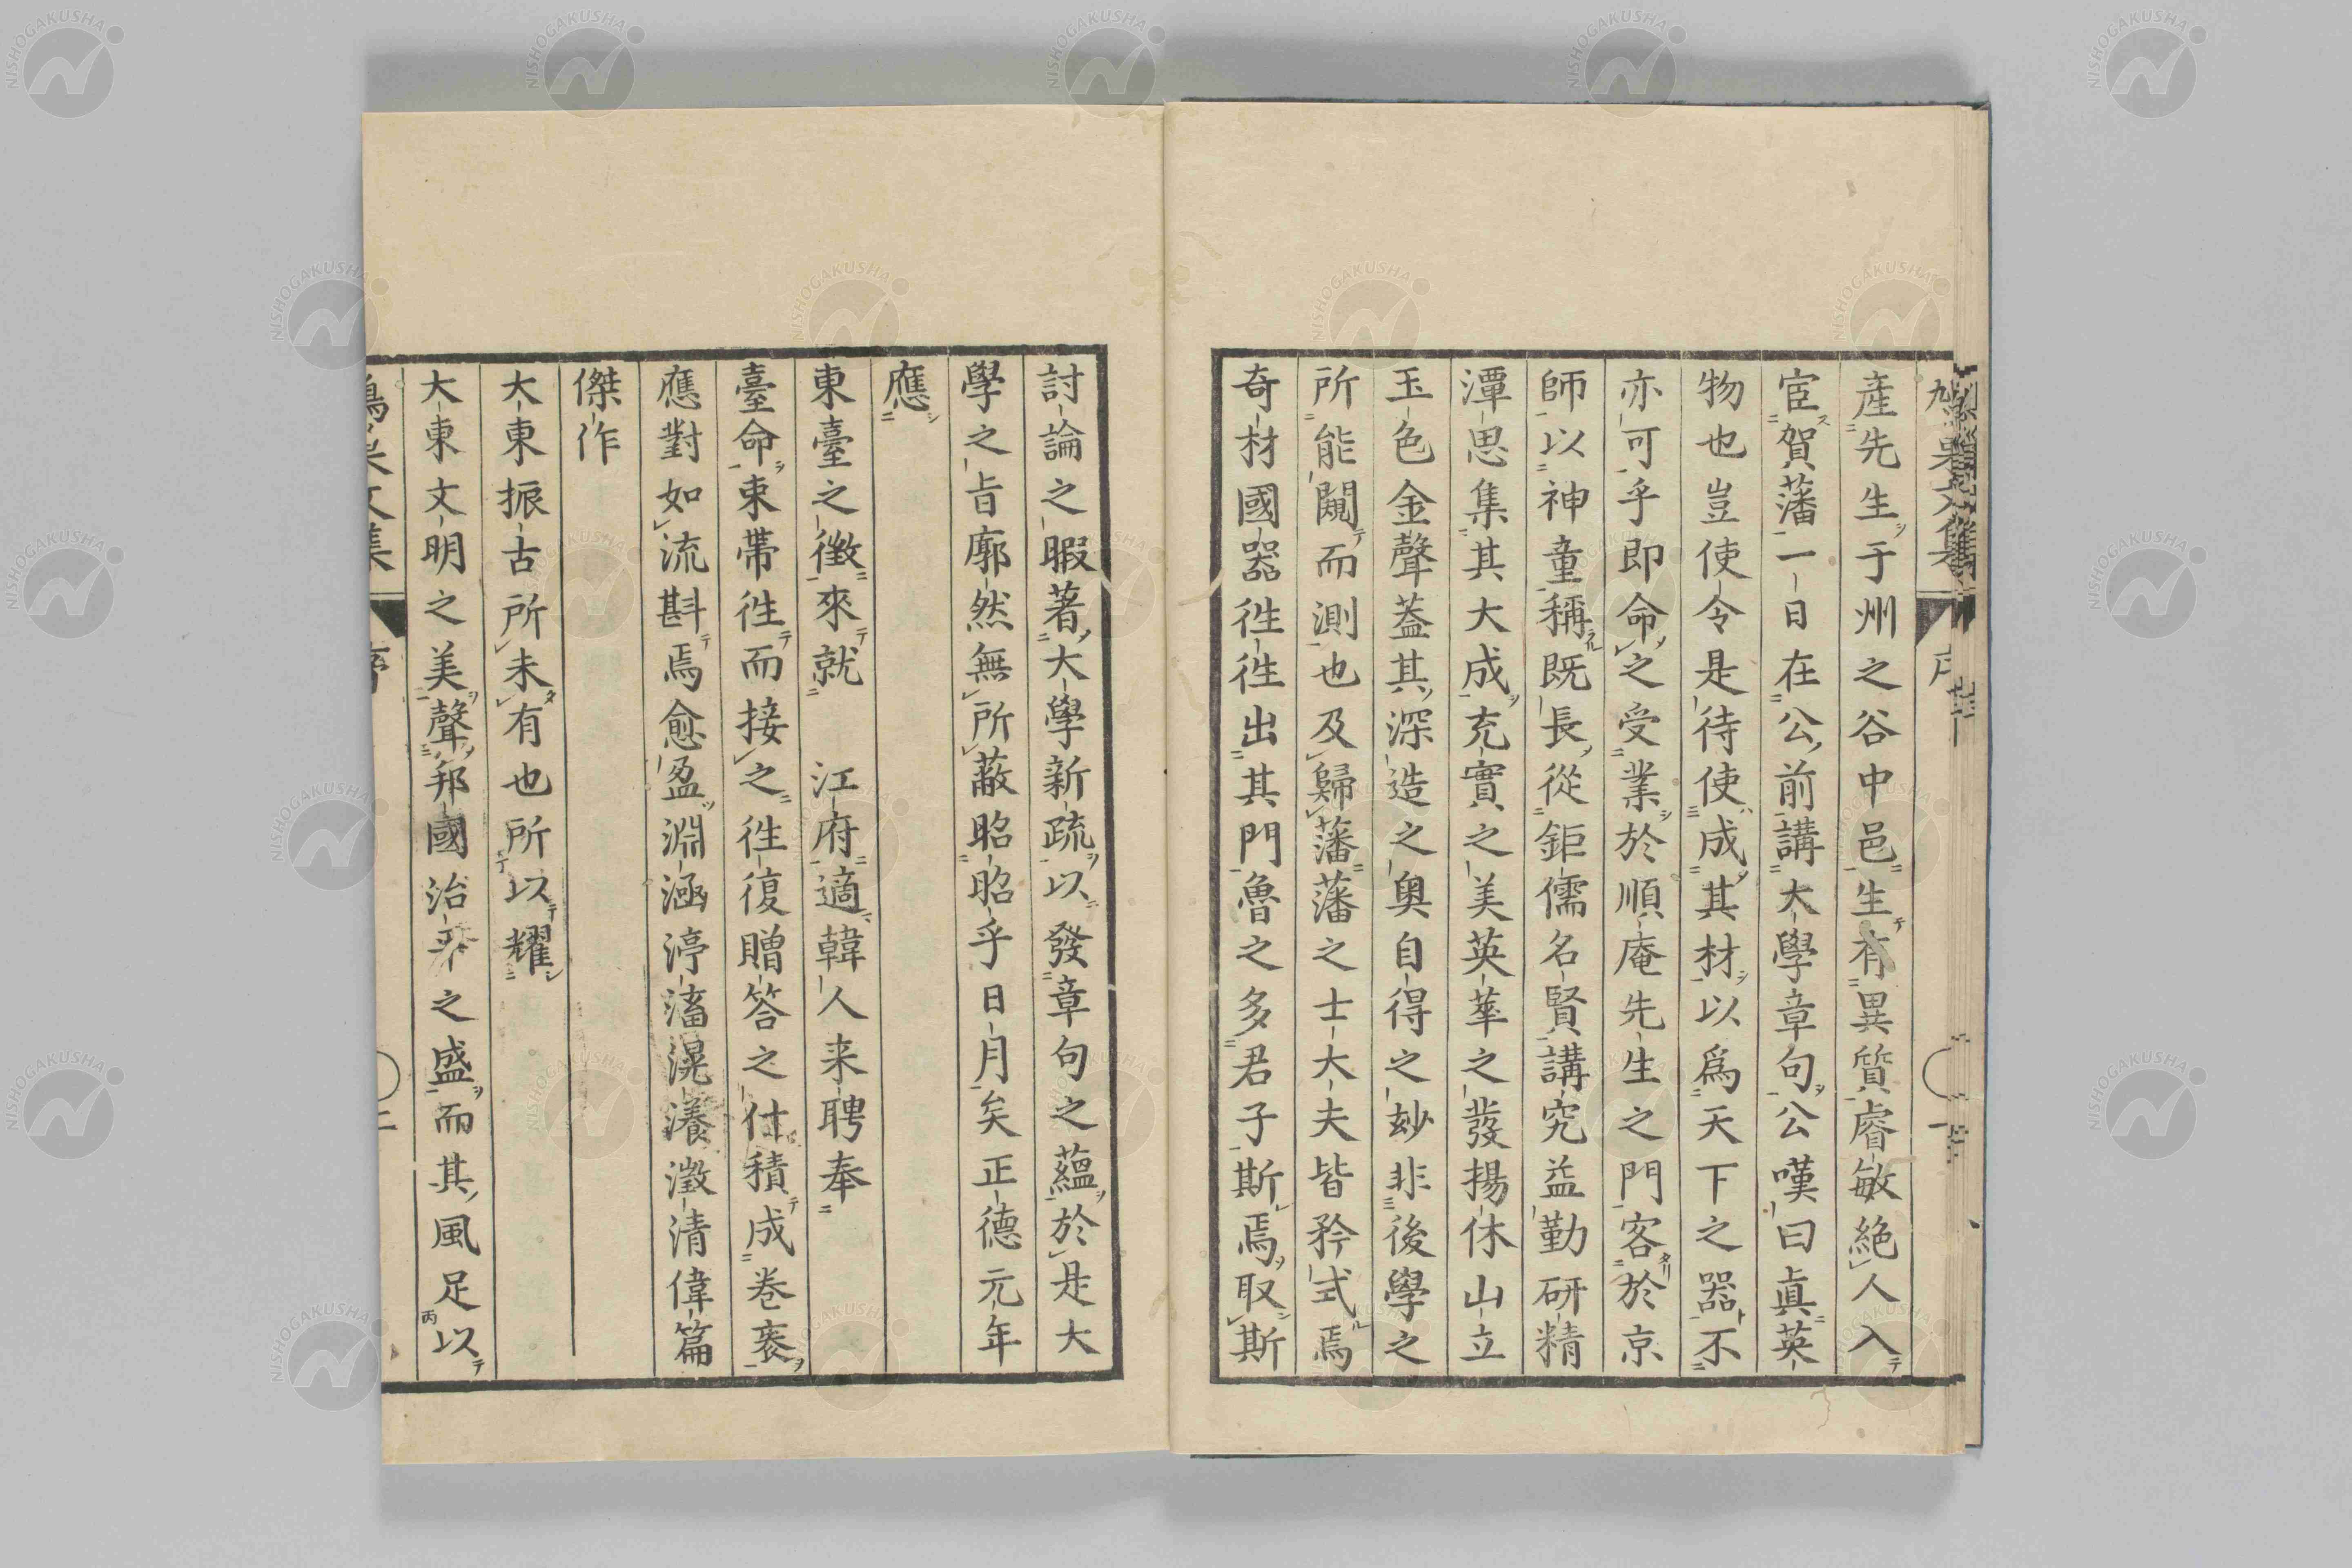 産先生于州之谷中邑生有異質睿敏絶人入
宦賀藩一日在公前講大學章句公嘆曰眞英
物也豈使令是待使成其材以爲天下之器不
亦可乎即命之受業於順庵先生之門客於京
師以神童稱既長從鉅儒名賢講究益勤研精
潭思集其大成充實之美英華之發揚休山立
玉色金聲蓋其深造之奥自得之玅非後學之
所能闚而測也及歸藩藩之士大夫皆矜式焉
奇材國器徃徃出其門魯之多君子斯焉取斯
討論之暇著大學新疏以發章句之蘊於是大
學之旨廓然無所蔽昭昭乎日月矣正德元年
應
東臺之徵來就　江府適韓人来聘奉
臺命束帶徃而接之徃復贈答之什積成巻袠
應對如流斟焉愈盈淵涵渟滀滉瀁澂清偉篇
傑作
大東振古所未有也所以耀
大東文明之美聲邦國治平之盛而其風足以
文集
序
二
NISHOGAKUSHA